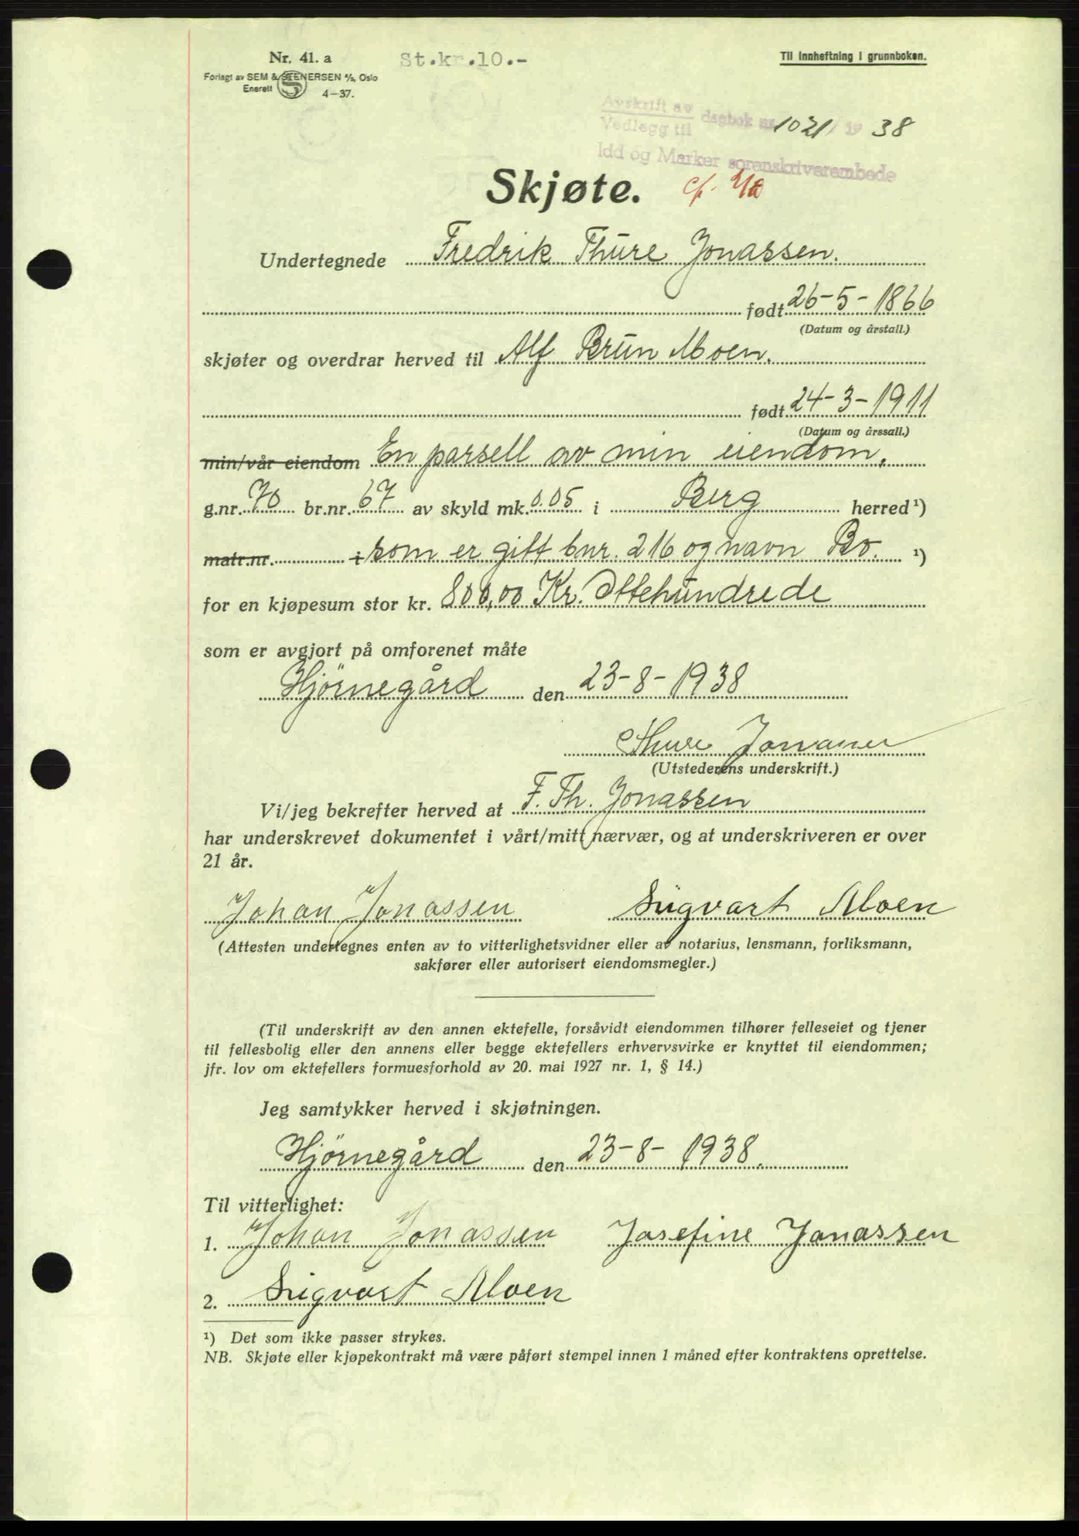 Nr. 41. a
St.kr.10.-
Til innheftning i grunnboken.
Forlagt av SEM & STENERSEN A/S, Oslo
Enerett
4—37.
Avskrift av
Vedlegg til
dagbok nr. 1021 / 19 38
Idd og Marker sorenskriverembede
Skjøte.
Undertegnede Fredrik Thure Jonassen.
født 26-5-1866
(Datum og årstall.)
skjøter og overdrar herved til Alf Brun Moen.
født 24-3-1911
(Datum og årssall.)
min/vår eiendom En parsell av min eiendom,
g.nr. 70 br.nr. 67 av skyld mk. 0.05 i Berg herred ¹)
matr.nr. i som er gitt bnr. 216 og navn Bo. ¹)
for en kjøpesum stor kr. 800,00 Kr. Ottehundrede
som er avgjort på omforenet måte
Hjörnegård den 23-8-1938
Thure Jonassen
(Utstederens underskrift.)
Vi/jeg bekrefter herved at F. Th. Jonassen
har underskrevet dokumentet i vårt/mitt nærvær, og at underskriveren er over
21 år.
Johan Jonassen Sigvart Moen
(Attesten undertegnes enten av to vitterlighetsvidner eller av notarius, lensmann, forliksmann,
sakfører eller autorisert eiendomsmegler.)
(Til underskrift av den annen ektefelle, forsåvidt eiendommen tilhører felleseiet og tjener
til fellesbolig eller den annens eller begge ektefellers erhvervsvirke er knyttet til eiendommen;
jfr. lov om ektefellers formuesforhold av 20. mai 1927 nr. 1, § 14.)
Jeg samtykker herved i skjøtningen.
Hjörnegård den 23-8-1938.
Til vitterlighet:
1. Johan Jonassen Josefine Jonassen
2. Sigvart Moen
¹) Det som ikke passer strykes.
NB. Skjøte eller kjøpekontrakt må være påført stempel innen 1 måned efter kontraktens oprettelse.